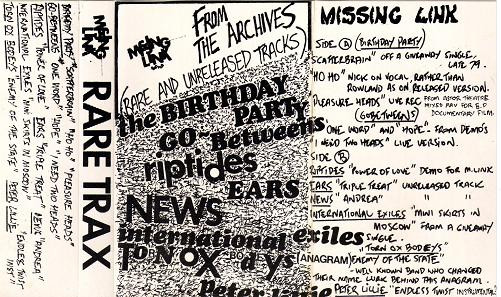 BIRTHDAY PARTY "SCATTERBRAIN" "HO HO" "PLEASURE HEADS"
GO BETWEENS "ONE WORD" "HOPE" "I NEED TWO HEADS"
RIPTIDES "POWER OF LOVE" EARS "TRIPLE TREAT" NEWS "ANDREA"
INTERNATIONAL EXILES "MINI SKIRTS IN MOSCOW"
TORN OX BODEYS "ENEMY OF THE STATE" PETER LILLIE "ENDLESS TWIST INST"
MISSING LINK
RARE TRAX
MISSING LINK
FROM THE ARCHIVES
(RARE AND UNRELEASED TRACKS)
the BIRTHDAY
PARTY
GO Betweens
riptides
EARS
NEWS
international exiles
TORN OX BODYS
Peter Lillie
MISSING LINK
SIDE A (BIRTHDAY PARTY)
SCATTERBRAIN" OFF A GIVEAWAY SINGLE.
LATE 79.
"HO HO" NICK ON VOCAL, RATHER THAN
ROWLAND AS ON RELEASED VERSION.
PLEASURE HEADS" LIVE REC FROM ASTOR THEATRE
MIXED RAY FOR E.P
DOCUMENTARY FILM.
(GOBETWEENS)
ONE WORD" AND "HOPE" - FROM DEMO'S
I NEED TWO HEADS" LIVE VERSION.
SIDE B
RIPTIDES "POWER OF LOVE" DEMO FOR M.LINK
EARS "TRIPLE TREAT" UNRELEASED TRACK
NEWS" "ANDREA" " "
INTERNATIONAL EXILES "MINI SKIRTS IN
MOSCOW" FROM A GIVEAWAY
SINGLE.
"TORN OX BODEYS"
(ANAGRAM) ENEMY OF THE STATE"
- WELL KNOWN BAND WHO CHANGED
THEIR NAME. LURK BEHIND THIS ANAGRAM.
PETER LILLIE "ENDLESS TWIST INSTRUMENTAL